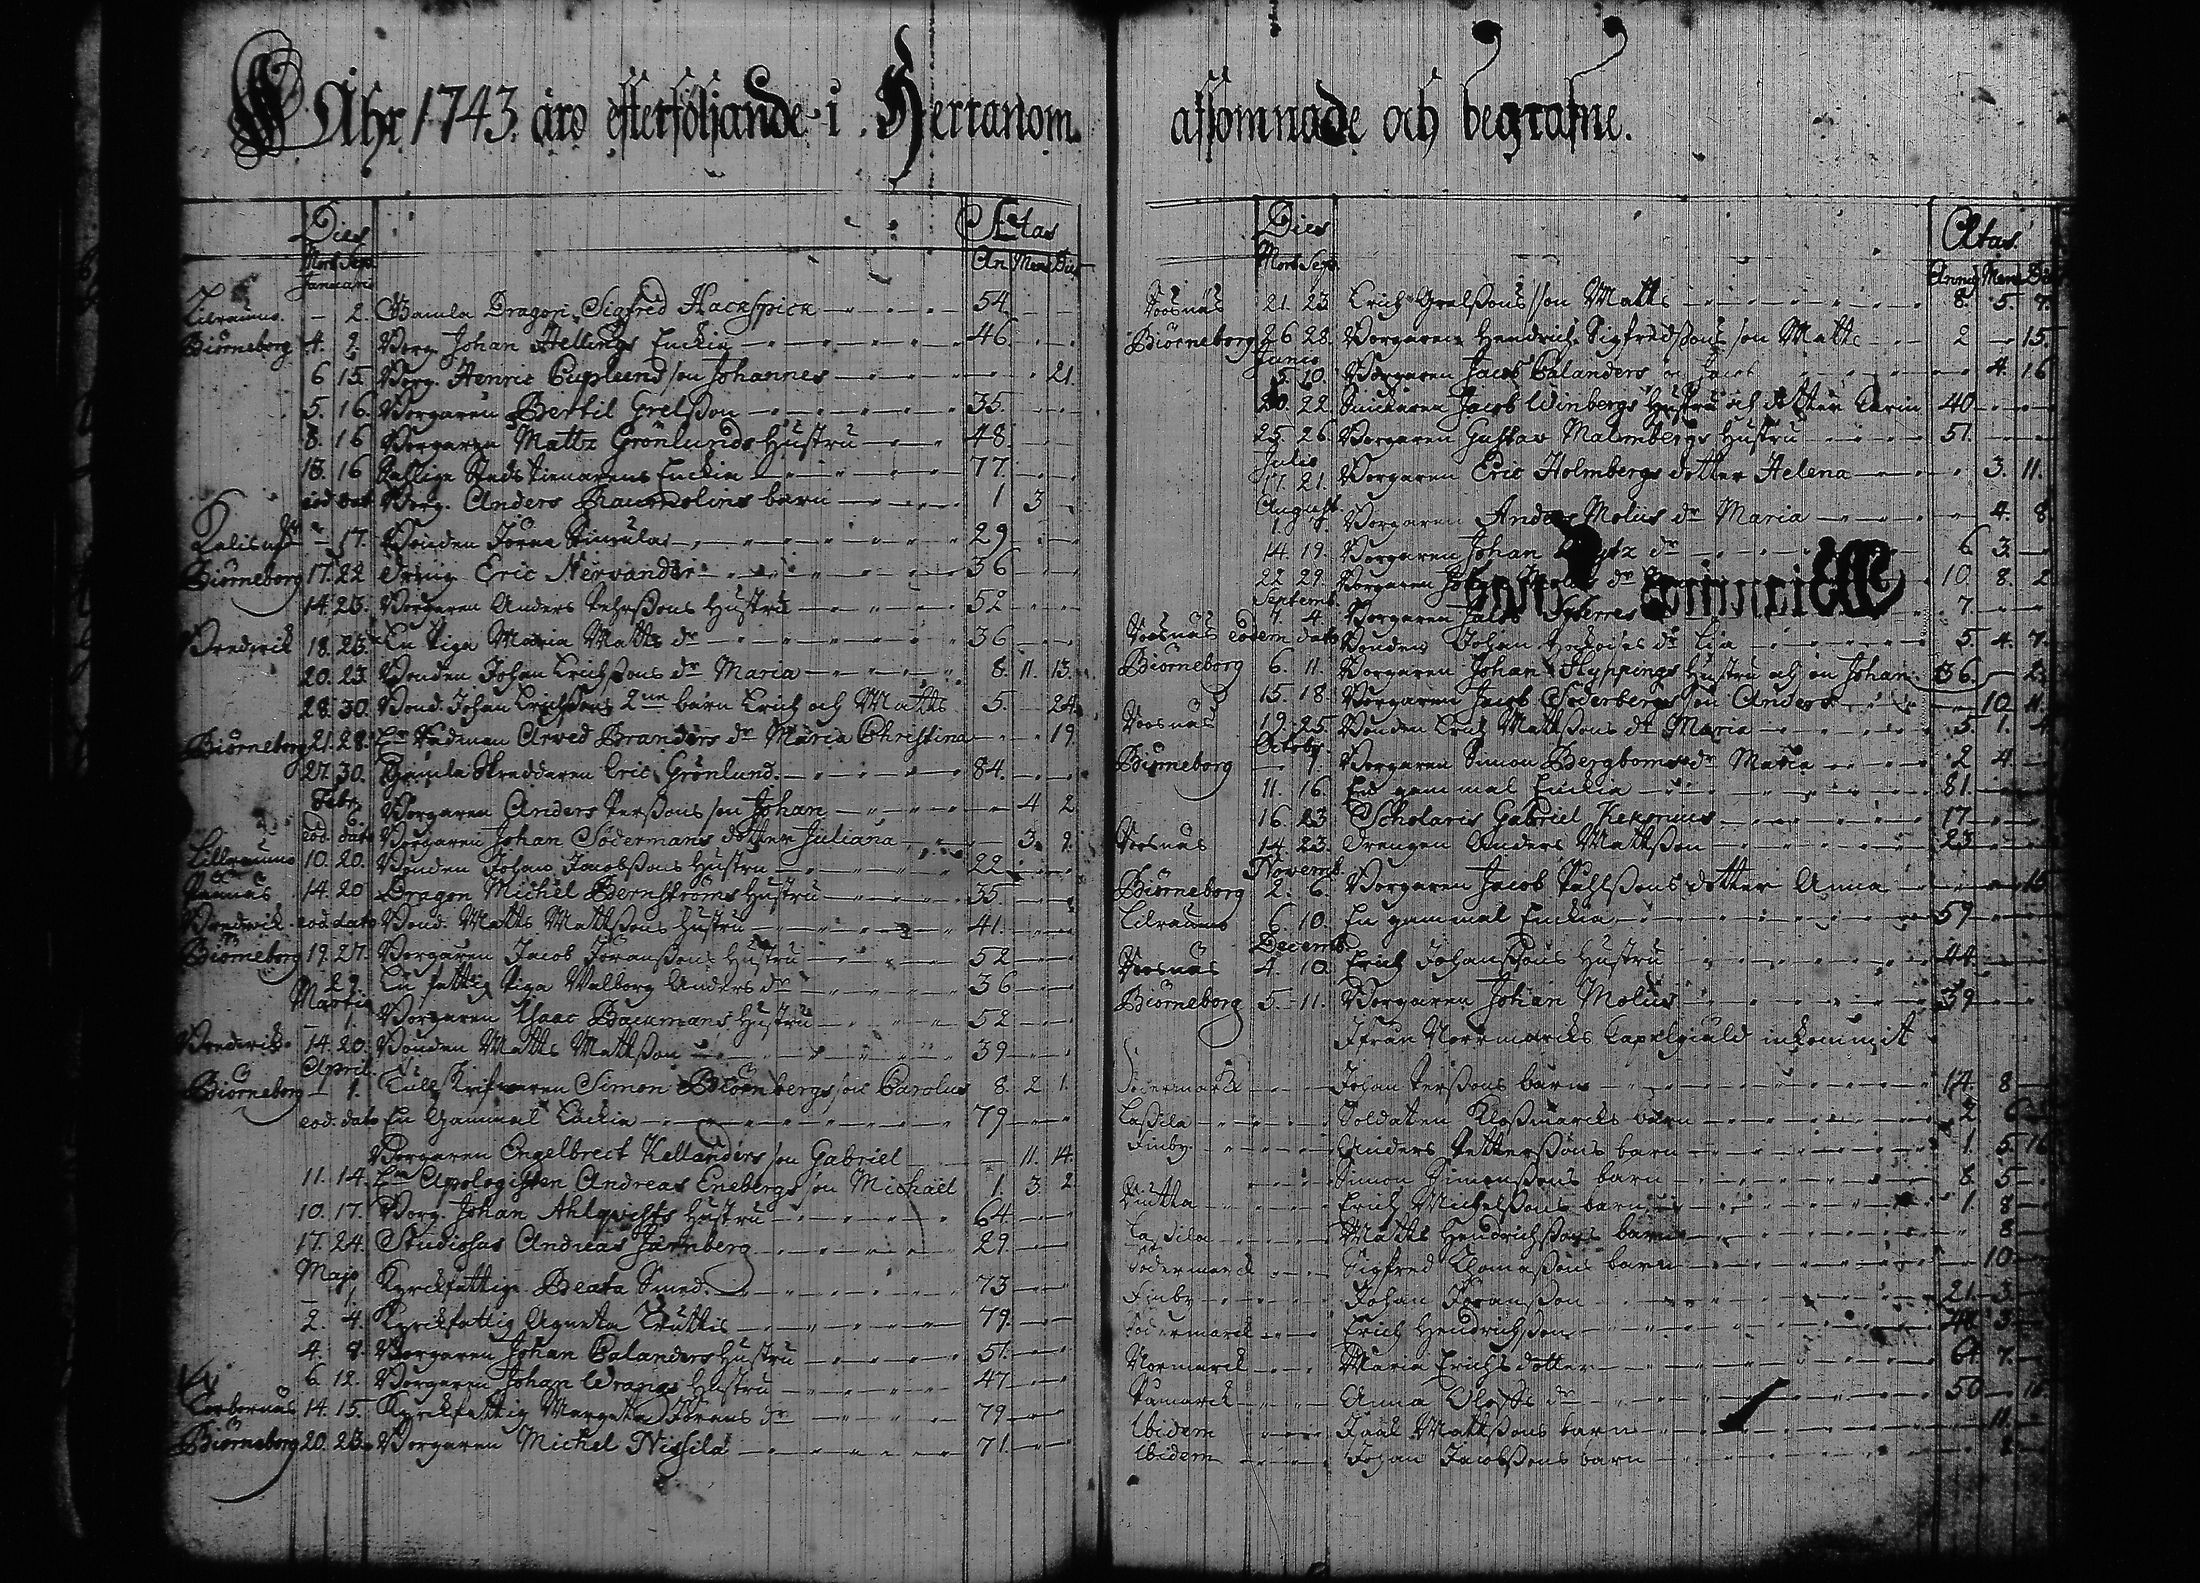 Åhr 1743. äro efterföljande i Herranom
Dies Ætas
Mort. Sepu. An Mens Dies
Januarii
Lilraumo. - 2. Gamla Dragon Sigfred Hackspick 54.
Biörneborg 4. 2. Borg. Johan Hellings Enckia 46.
6 15. Borg. Henric Cuplænd son Johannes 21.
5. 16. Borgaren Bertil Grelsson 35.
8. 16 Borgaren Matts Grönlunds Hustru 48.
13. 16 Stads tienarens Enckia 77.
eod dat Borg. Anders Raumolins barn 1 3
17. Bonden Jöran 29
Biörneborg 17. 22 Eric Nervander 36
14. 23. Borgaren Anders Pehrssons Hustru 52
Brederik 18. 23. En Piga Maria Matts dr 36
20. 23 Bonden Johan Erichssons dr Maria 8. 11. 13.
28. 30. Bond. Johan Erichssons 2ne barn Erich och Matts 5 24.
Biörneborg 21. 28. Rådman Arved Branders dr Maria Christina 19
27. 30. Gamla Skreddaren Eric Grönlund. 84.
Febr.
6. Borgaren Anders Perssons son Johan 4 2
eod. dato Borgaren Johan Södermans dotter Juliana 3. 2.
Lillraumo 10. 20. Bonden Johan Jacobssons Hustru 22
14. 20 Dragon Michel Bernströms Hustru 35.
Brederik eod dato Bond. Matts Mattssons Hustru 41.
Biörneborg 19. 27. Borgaren Jacob Jöranssons Hustru 52
27. En fattig Piga Walborg Anders dr 36
Martii
1. Borgaren Isaac Backmans Hustru 52
Brederik. 14. 20. Bonden Matts Mattsson 39
April.
Biörneborg - 1. Simon Biörnbergs son Carolus 8. 2 1.
eod. dato En Gammal Enckia 79
Borgaren Engelbrect Kellanders son Gabriel 11. 14.
11. 14. Apologisten Andreas Enebergs son Michael 1 3. 2
10. 17. Borg. Johan Ahlqwists Hustru 64.
17. 24. Studiosus Andreas Jarnberg 29.
Majo
1 Kyrckfattige Beata Smed. 73
2. 4. Kyrckfattig Agneta Truttis 79.
4. 8. Borgaren Johan Calanders Hustru 51.
6. 12. Borgaren Johan Wrangs Hustru 47
14. 15. Kyrckfattig Margeta Jörans dr 79
Biörneborg 20. 23. Borgaren Michel Nissilä 71.
afsomnade och begrafne.
Dies Ætas
Mort Sepu Annus Mens Dies
Voosnäs 21. 23 Erich Grelssons son Matts 8. 5. 7.
Biörneborg 26 28. Borgaren Hendrich Sigfredssons son Matts 2 15.
Junio
5. 10. Borgaren Jacob Calanders son Jacob 4. 16
20. 22. Snickaren Jacob Winbergs Hustru och dotter Carin 40
25. 26. Borgaren Gustav Malmbergs Hustru 51.
Julio
17. 21. Borgaren Eric Holmbergs dotter Helena 3. 11.
August.
1. 7. Borgaren Anders Molius dr Maria 4. 8
14. 19. Borgaren Johan dr 6 3.
22 29. Borgaren dr 10. 8. 2
Septemb.
1. 4. Borgaren Jacob 7.
Voosnäs eodem dato Bondens Johan dr Lisa 5. 4. 7.
Biörneborg 6. 11. Borgaren Johan Skyppings Hustru och son Johan 36. 2.
15. 18. Borgaren Jacob Söderbergs son Anders 10. 11.
Voosnäs 19. 25. Bonden Erich Mattssons dr Maria 5. 1. 4
Octobr.
Biörneborg - 1. Borgaren Simon Bergboms dr Maria 2 4.
11. 16. En gammal Enckia 81.
16. 23 Scholaris Gabriel Keksonius 17
Voosnäs 14. 23. Drengen Anders Mattsson 23
Novemb.
Biörneborg 2. 6. Borgaren Jacob Påhlssons dotter Anna 15
Lilraumo 6. 10. En gammal Enckia 59
Decemb.
Voosnäs 4. 10. Erich Johanssons Hustru 44.
Biörneborg 5. 11. Borgaren Johan Molius 39
Ifrån Norrmarcks Capelgiäld inkommit
Södermarck Johan Perssons barn 14. 8
Lassila Soldaten Klossmarcks barn 2 6
Finby Anders Pettersons barn 1. 5. 16
Simon Simonssons barn 8. 5
Erich Michelssons barn 1. 8
Lassila Matts Hendrichssons barn 8
Södermarck Sigfred Thomassons barn 10
Finby Johan Jöransson 21. 3
Södermarck Erich Hendrichsson 40 3
Normarck Maria Erichs dotter 61. 7.
Påmarck Anna Olofs dr 50
Ibidem Påål Mattssons barn 11.
Ibidem Johan Jacobssons barn